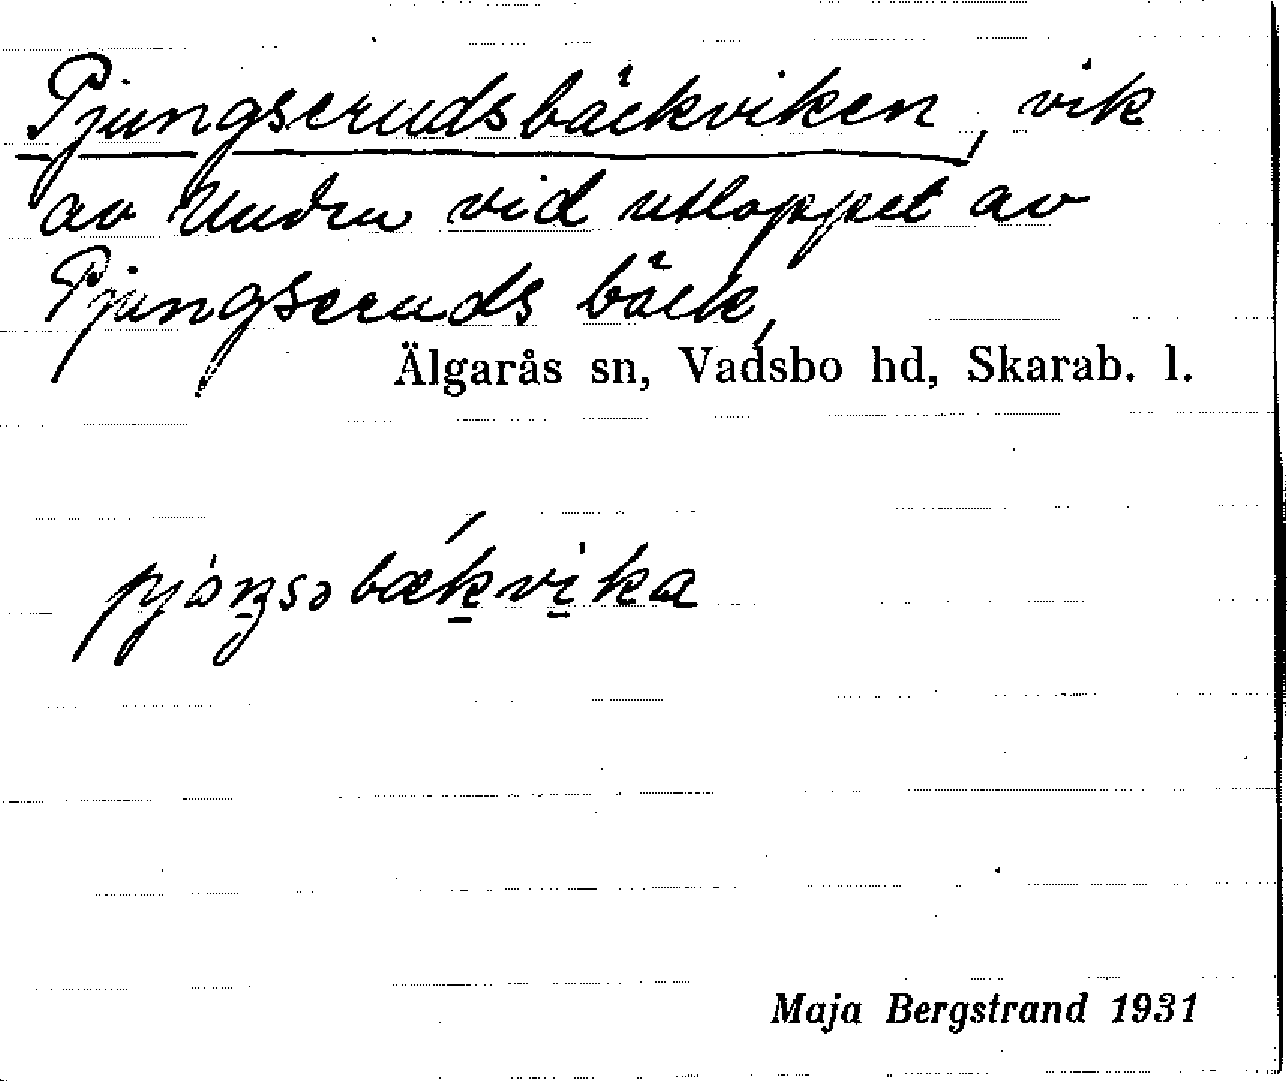 Pjungserudsbäckviken, vik
av Unden vid utloppet av
Pjungseruds bäck,
Älgarås sn, Vadsbo hd, Skarab. l.
Maja Bergstrand 1931